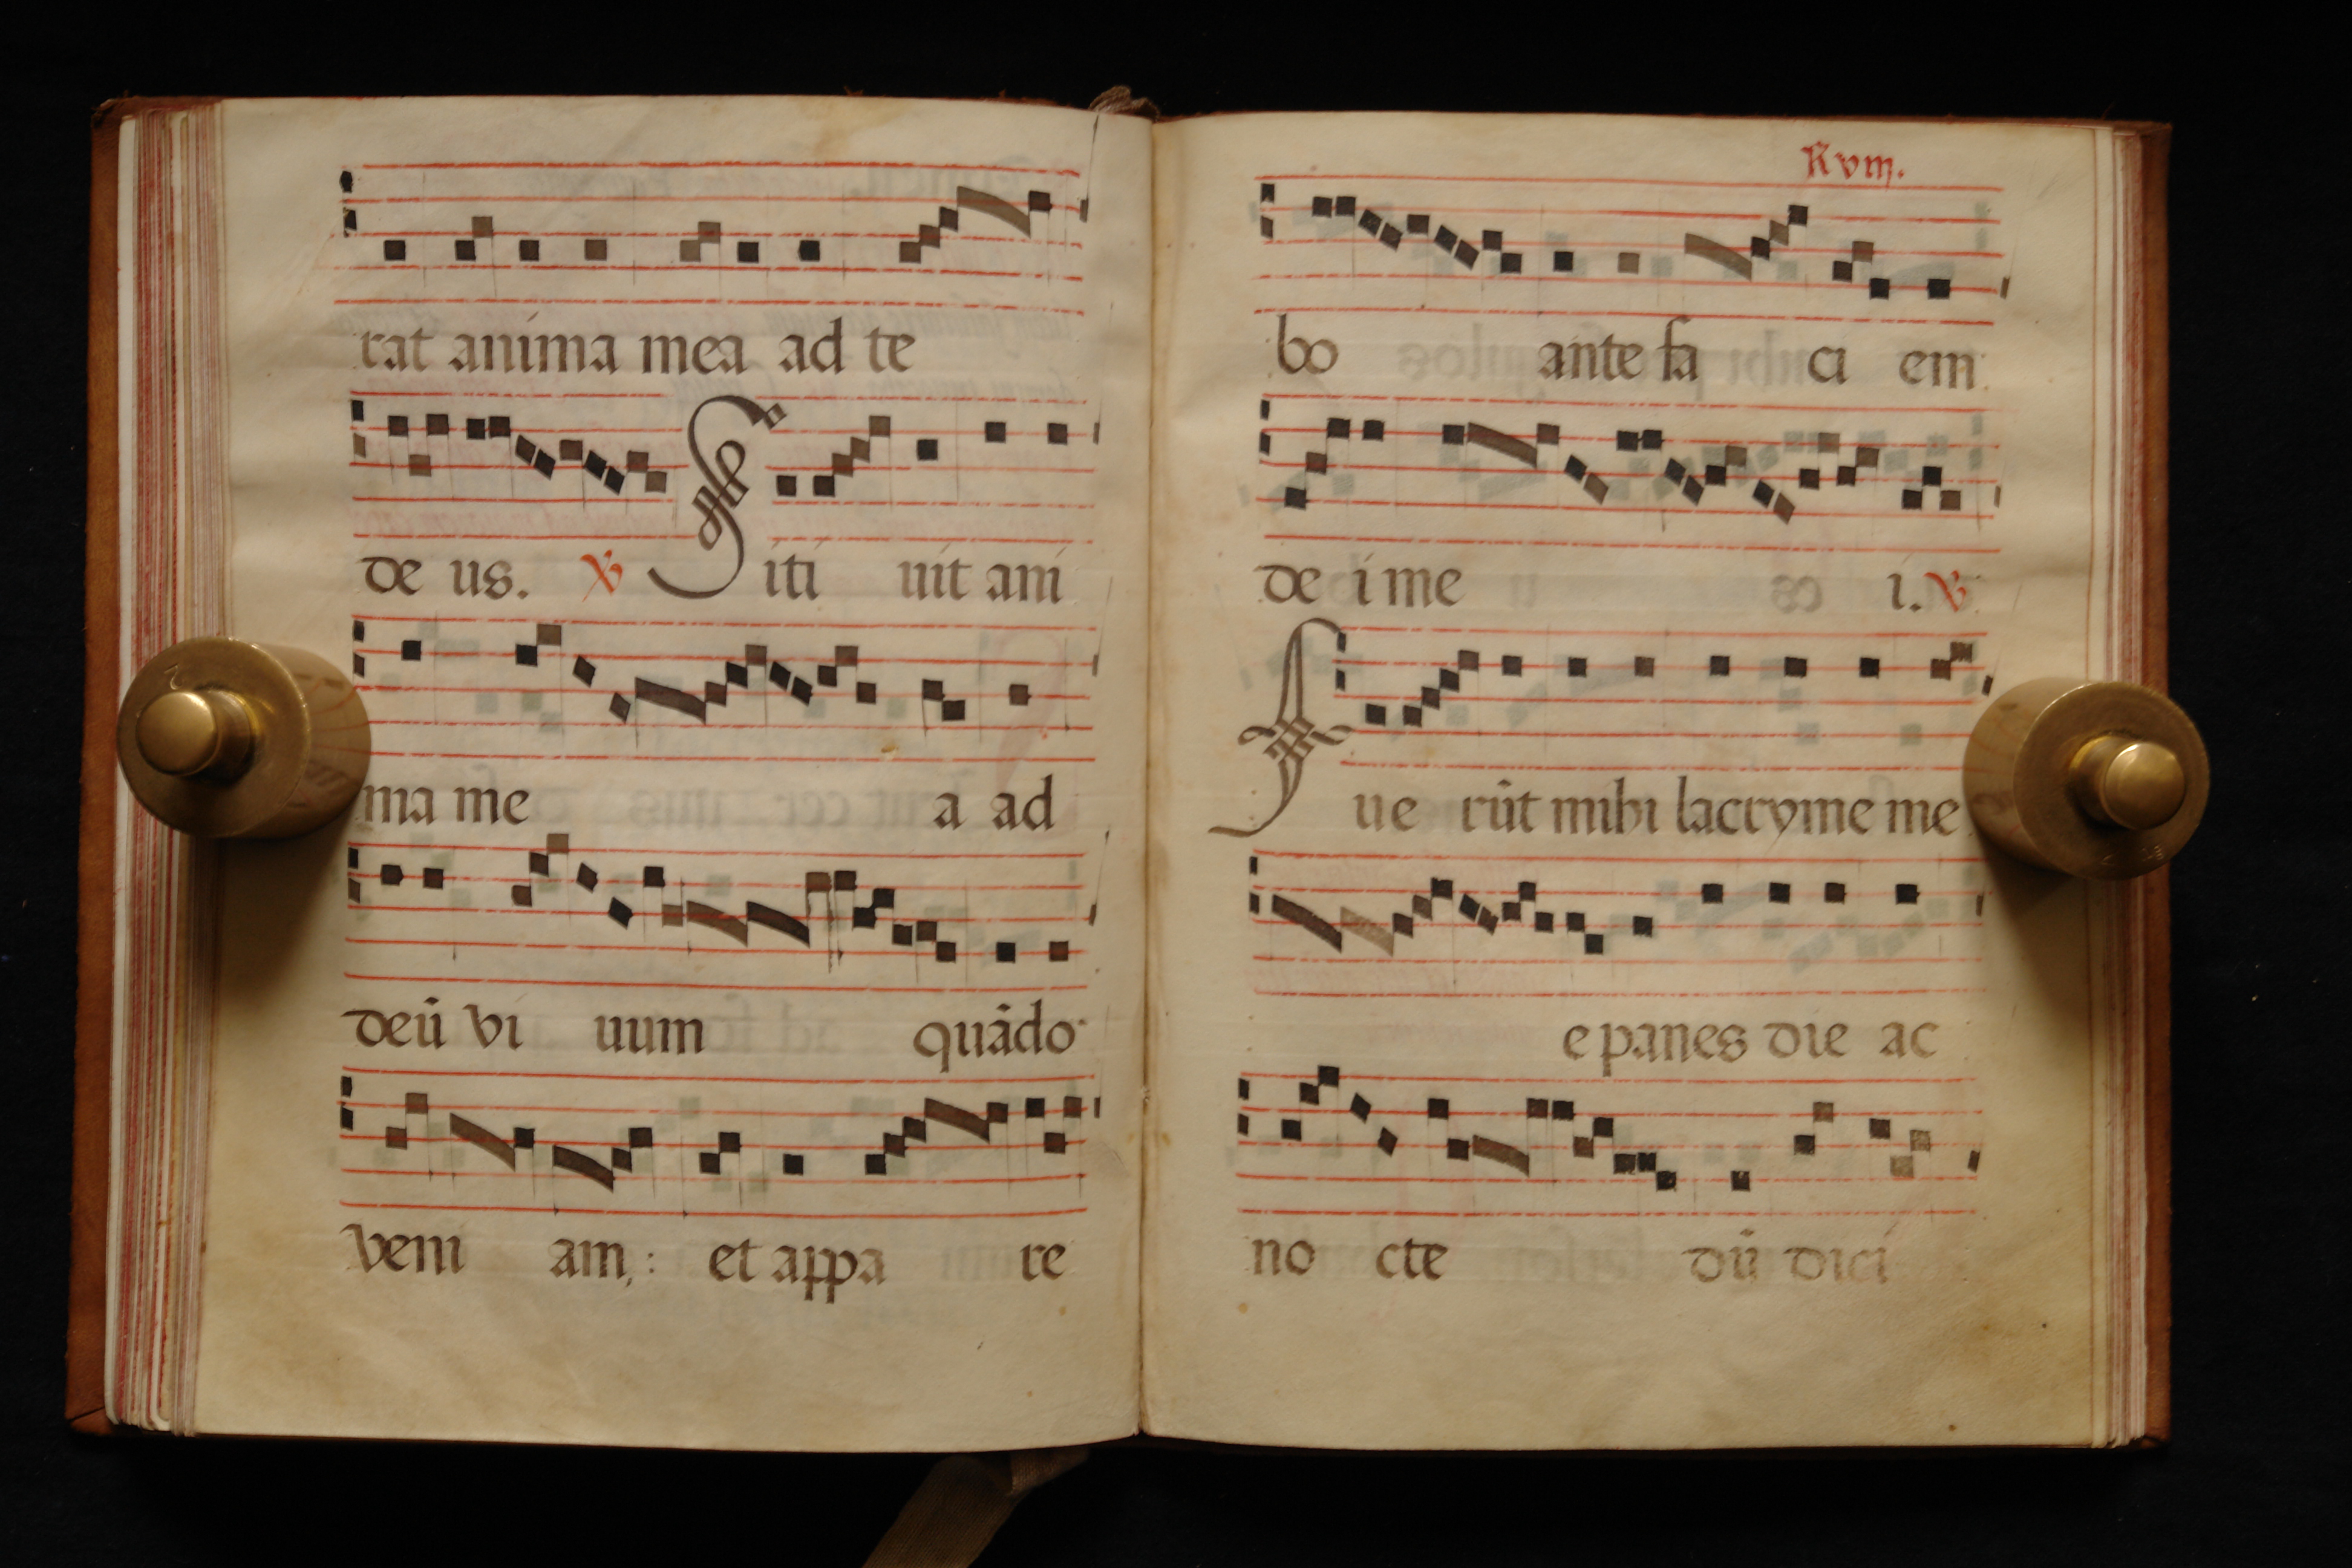 rat anima mea ad te
de us. ℣ Siti uit ani
ma me a ad
deū vi uum quādo
veni am: et appa re
Rvm.
bo ante fa ci em
de i me i. ℣
Fue rūt mihi lacryme me
e panes die ac
no cte dū dici